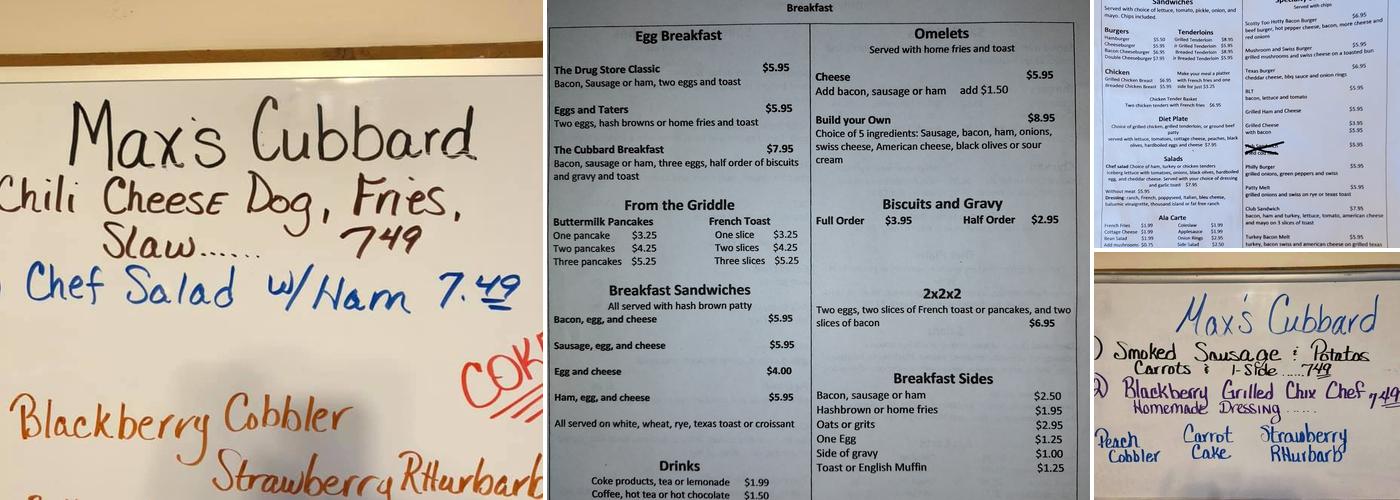 Max's Cubbard
Chili Cheese Dog, Fries,
Slaw...... 749
Chef Salad w/Ham 7.49
COKE
Blackberry Cobbler
Strawberry RHurbarb
Breakfast
Egg Breakfast
The Drug Store Classic $5.95
Bacon, Sausage or ham, two eggs and toast
Eggs and Taters $5.95
Two eggs, hash browns or home fries and toast
The Cubbard Breakfast $7.95
Bacon, sausage or ham, three eggs, half order of biscuits
and gravy and toast
From the Griddle
Buttermilk Pancakes French Toast
One pancake $3.25 One slice $3.25
Two pancakes $4.25 Two slices $4.25
Three pancakes $5.25 Three slices $5.25
Breakfast Sandwiches
All served with hash brown patty
Bacon, egg, and cheese $5.95
Sausage, egg, and cheese $5.95
Egg and cheese $4.00
Ham, egg, and cheese $5.95
All served on white, wheat, rye, texas toast or croissant
Drinks
Coke products, tea or lemonade $1.99
Coffee, hot tea or hot chocolate $1.50
Omelets
Served with home fries and toast
Cheese $5.95
Add bacon, sausage or ham add $1.50
Build your Own $8.95
Choice of 5 ingredients: Sausage, bacon, ham, onions,
swiss cheese, American cheese, black olives or sour
cream
Biscuits and Gravy
Full Order $3.95 Half Order $2.95
2x2x2
Two eggs, two slices of French toast or pancakes, and two
slices of bacon $6.95
Breakfast Sides
Bacon, sausage or ham $2.50
Hashbrown or home fries $1.95
Oats or grits $2.95
One Egg $1.25
Side of gravy $1.00
Toast or English Muffin $1.25
Sandwiches
Served with choice of lettuce, tomato, pickle, onion, and
mayo. Chips included.
Burgers Tenderloins
Hamburger $5.50 Grilled Tenderloin $8.95
Cheeseburger $5.95 Jr Grilled Tenderloin $5.95
Bacon Cheeseburger $6.95 Breaded Tenderloin $8.95
Double Cheeseburger $7.95 Jr Breaded Tenderloin $5.95
Chicken
Grilled Chicken Breast $6.95
Breaded Chicken Breast $5.95
Make your meal a platter
with French fries and one
side for just $3.25
Chicken Tender Basket
Two chicken tenders with French fries $6.95
Diet Plate
Choice of grilled chicken, grilled tenderloin, or ground beef
patty
served with lettuce, tomatoes, cottage cheese, peaches, black
olives, hardboiled eggs and cheese $7.95
Salads
Chef salad Choice of ham, turkey or chicken tenders
Iceberg lettuce with tomatoes, onions, black olives, hardboiled
egg, and cheddar cheese. Served with your choice of dressing
and garlic toast $7.95
Without meat $5.95
Dressing: ranch, French, poppyseed, Italian, bleu cheese,
balsamic vinaigrette, thousand island or fat free ranch
Ala Carte
French Fries $1.99 Coleslaw $1.99
Cottage Cheese $1.99 Applesauce $1.99
Bean Salad $1.99 Onion Rings $2.95
Add mushrooms $0.75 Side Salad $2.50
Served with chips
Scotty Too Hotty Bacon Burger $6.95
beef burger, hot pepper cheese, bacon, more cheese and
red onions
Mushroom and Swiss Burger $6.95
grilled mushrooms and swiss cheese on a toasted bun
Texas Burger $6.95
cheddar cheese, bbq sauce and onion rings
BLT $5.95
bacon, lettuce and tomato
Grilled Ham and Cheese $5.95
Grilled Cheese $3.95
with bacon $5.95
Philly Burger $5.95
grilled onions, green peppers and swiss
Patty Melt $5.95
grilled onions and swiss on rye or texas toast
Club Sandwich $7.95
bacon, ham and turkey, lettuce, tomato, american cheese
and mayo on 3 slices of toast
Turkey Bacon Melt $5.95
turkey, bacon swiss and american cheese on grilled texas
Max's Cubbard
) Smoked Sausage & Potatos
Carrots & 1-Side .....749
2) Blackberry Grilled Chix Chef 749
Homemade Dressing ......
Peach Carrot Strawberry
Cobbler Cake RHurbarb